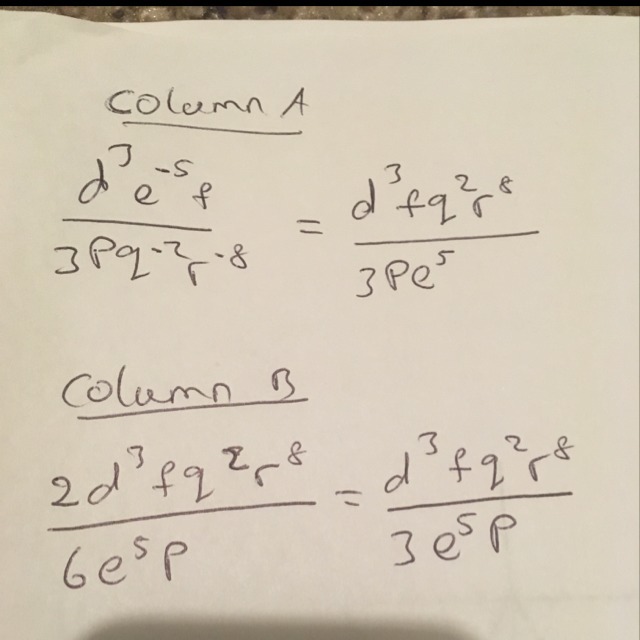 Column A
d³e⁻⁵f / 3Pq⁻²r⁻⁸ = d³fq²r⁸ / 3Pe⁵
Column B
2d³fq²r⁸ / 6e⁵P = d³fq²r⁸ / 3e⁵P